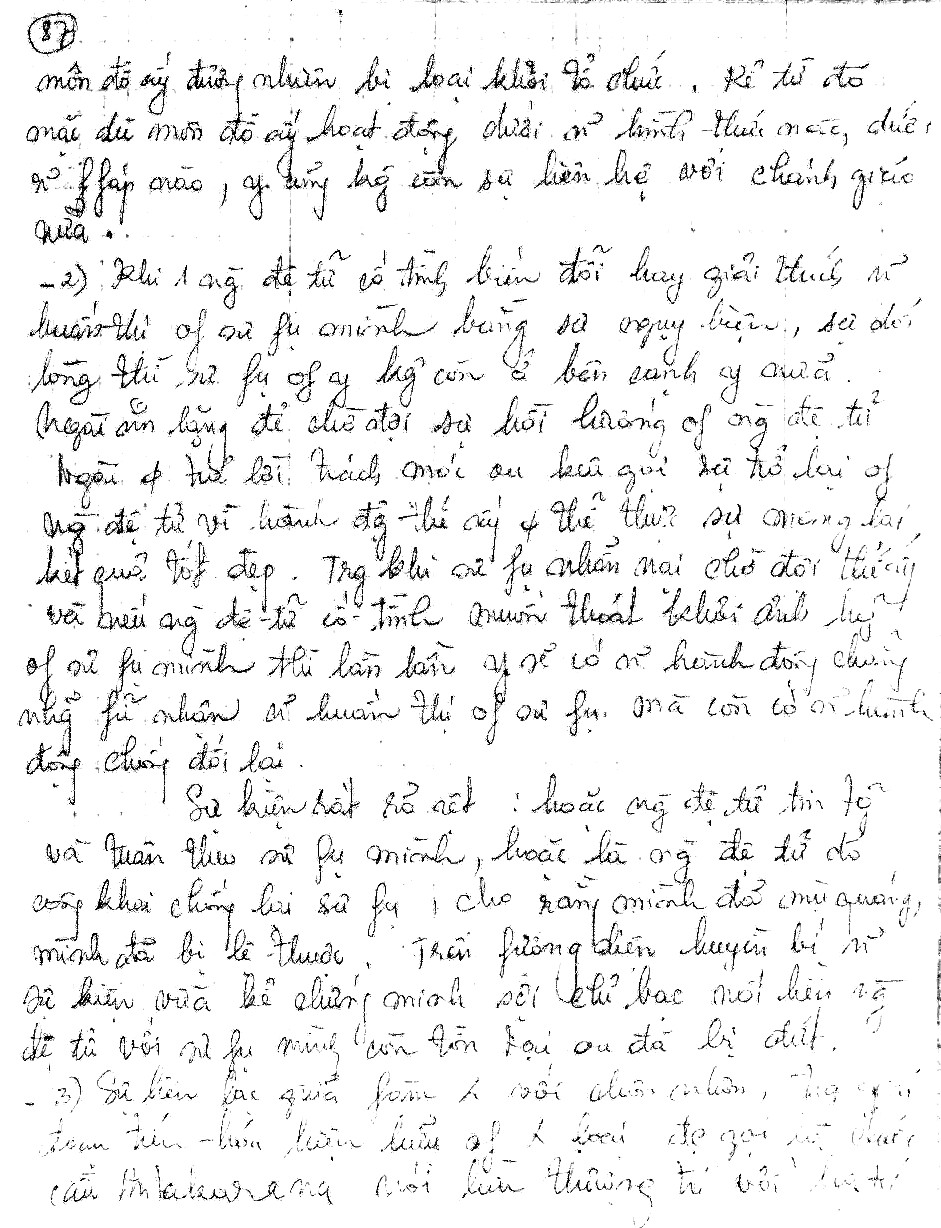 87
môn đồ ấy đương nhiên bị loại khỏi tổ chức. Kể từ đó
mặc dù môn đồ ấy hoạt động dưới n~ hình thức nào, dưới
n~ fáp nào, y cũng kg còn sự liên hệ với chánh giáo
nữa.
-2) Khi 1 ng` đệ tử cố tình biến đổi hay giải thích n~
huấn thị of sư fụ mình bằng sự ngụy biện, sự dối
lòng thì sư fụ of y kg còn ở bên cạnh y nữa.
Ngài im lặng để chờ đợi sự hồi hướng of ng` đệ tử
Ngài trả lời trách móc ou kêu gọi sự trở lại of
ng` đệ tử, vì hành độg thế ấy thể thực sự mang lại
kết quả tốt đẹp. Trg khi sư fụ nhẫn nại chờ đợi thế ấy
và nếu ng` đệ tử cố tình muốn thoát khỏi ảnh hg~
of sư fụ mình thì lần lần y sẽ có n~ hành động chẳng
nhg~ fủ nhận n~ huấn thị of sư fụ. mà còn có n~ hành
động chống đối lại.
Sự kiện rất rỏ rệt : hoặc ng` đệ tử tin tg~
và tuân theo sư fụ mình, hoặc là ng` đệ tử đó
công khai chống lại sư fụ, cho rằng mình đã mù quáng,
mình đã bị lệ thuộc. Trên fương diện huyền bí n~
sự kiện vừa kể chứng minh sợi chỉ bạc nối liền ng`
đệ tử với sư fụ mình còn tồn tại ou đã bị đứt.
- 3) Sự liên lạc giữa fàm với chân nhân,
tiến hóa hiện hữu of loại
cầu Antakarana nối liền thượng trí với hạ trí